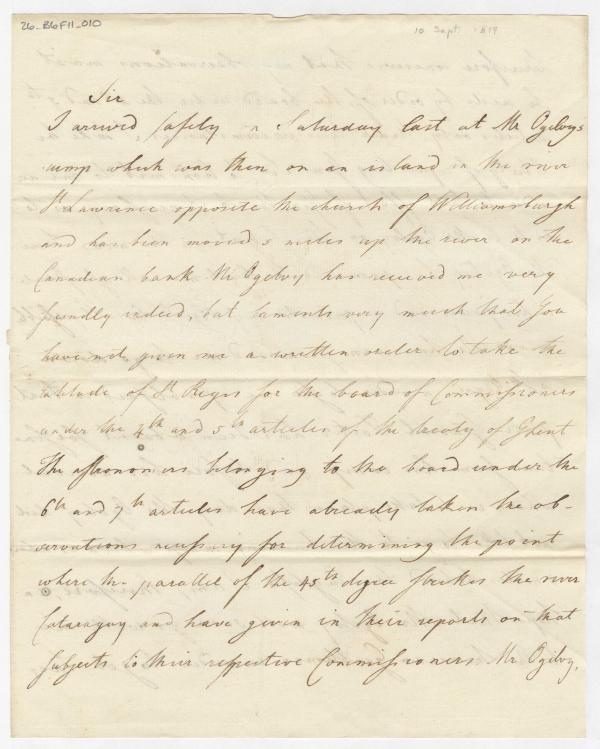 26_B6F11_010
10 Sept. 1819
Sir
I arrived safely on Saturday last at Mr Ogilvys
camp which was then on an island in the river
St Lawrence opposite the church of Williamsburgh
and has been moved 5 miles up the river on the
Canadian bank Mr Ogilvy has received me very
friendly indeed, but laments very much that You
have not given me a written order to take the
latitude of St Regis for the board of Commissioners
under the 4th and 5th articles of the treaty of Ghent
The astronomers belonging to the board under the
6th and 7th articles have already taken the ob-
servations necessary for determining the point
where the parallel of the 45th degree strikes the river
Cataraguy and have given in their reports on that
subjects to their respective Commissioners. Mr Ogilvy,